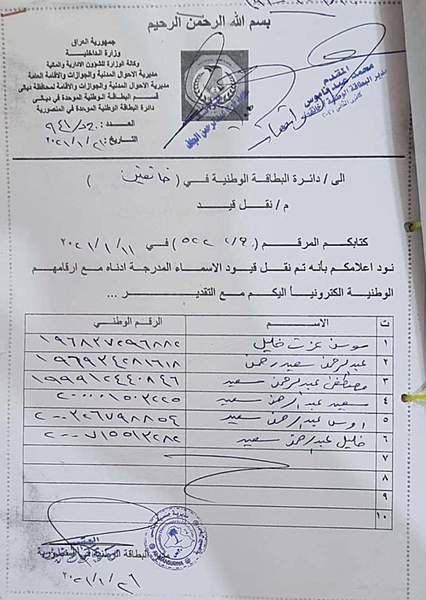 بسم الله الرحمن الرحيم
جمهورية العراق
وزارة الداخلية
وكالة الوزارة للشؤون الادارية والمالية
مديرية الاحوال المدنية والجوازات والاقامة العامة
مديرية الاحوال المدنية والجوازات والاقامة لمحافظة ديالى
قسم البطاقة الوطنية الموحدة في ديالى
دائرة البطاقة الوطنية الموحدة في المنصورية
العدد:
التاريخ: ٢٠٢١/١/٢٦
المقدم
الى / دائرة البطاقة الوطنية في ( خانقين )
م / نقل قيد
كتابكم المرقم في ٢٠٢١/١/١١
نود اعلامكم بأنه تم نقل قيود الاسماء المدرجة ادناه مع ارقامهم
الوطنية الكترونياً اليكم مع التقدير ...
ت الاسم الرقم الوطني
١ سوسن عزت خليل ١٩٦٨٣٧٢٩٦٨٨٢
٢ عبدالرحمن سعيد رحمن ١٩٦٩٣٤٢٨١٦١٨
٣ مصطفى عبدالرحمن سعيد ١٩٩٩١٢٤٤٠٨٤٦
٤ سعيد عبدالرحمن سعيد ٢٠٠٠٠١٥٠٣٢٢٥
٥ اوس عبدالرحمن سعيد ٢٠٠٣٢٦٧٩٨٨٥٤
٦ خليل عبدالرحمن سعيد ٢٠٠٧١٥٥١٣٢٨٢
٧
٨
٩
١٠
البطاقة الوطنية في المنصورية
٢٠٢١/١/٢٦